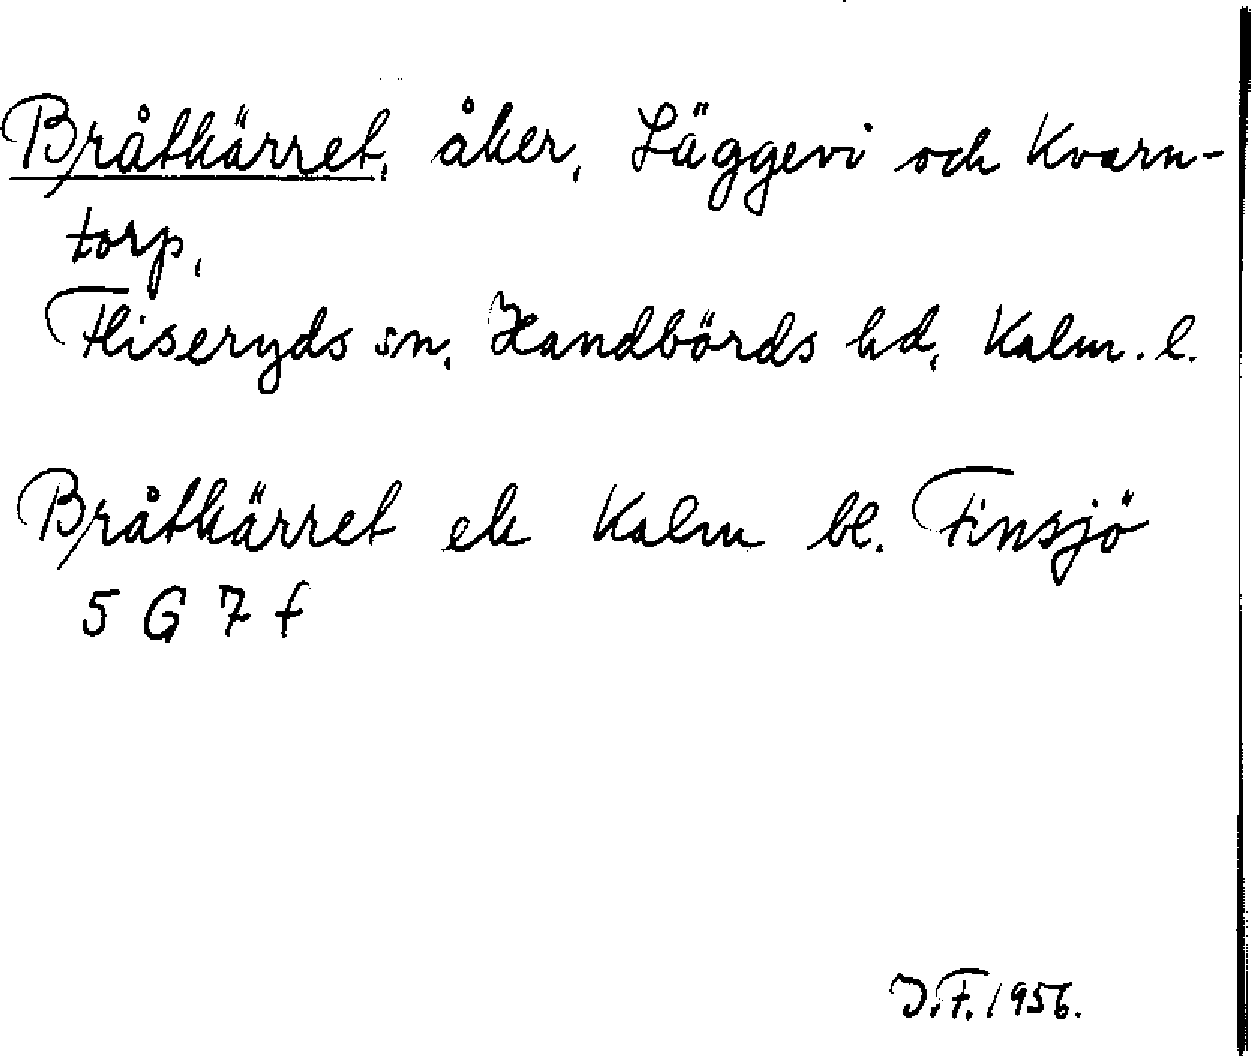 Bråtkärret, åker, Läggevi och Kvarn-
torp,
Fliseryds sn, Handbörds hd, Kalm. l.
Bråtkärret ek Kalm bl. Finsjö
5 G 7 f
J.F. 1956.